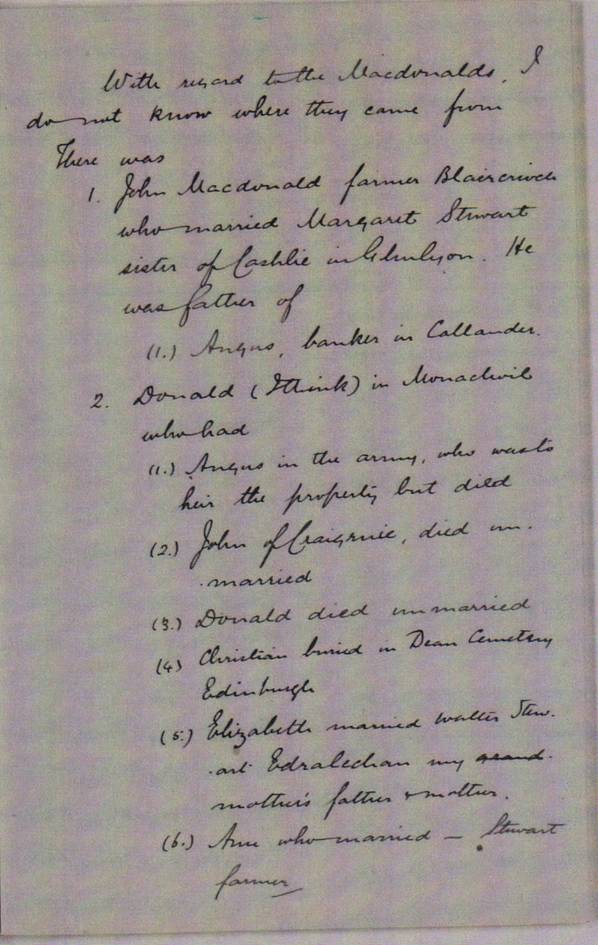 With regard to the Macdonalds, I
do not know where they came from
There was
1. John Macdonald farmer Blaircrivich
who married Margaret Stewart
sister of Cashlie in Glenlyon. He
was father of
(1.) Angus, banker in Callander.
2. Donald (I think) in Monachvile
who had
(1.) Angus in the army, who was to
heir the property but died
(2.) John of Craigruie, died un.
married
(3.) Donald died unmarried
(4) Christian buried in Dean Cemetery
Edinburgh
(5.) Elizabeth married Walter Stew.
art Edralechan my grand.
mother's father & mother.
(6.) Ann who married — Stewart
farmer